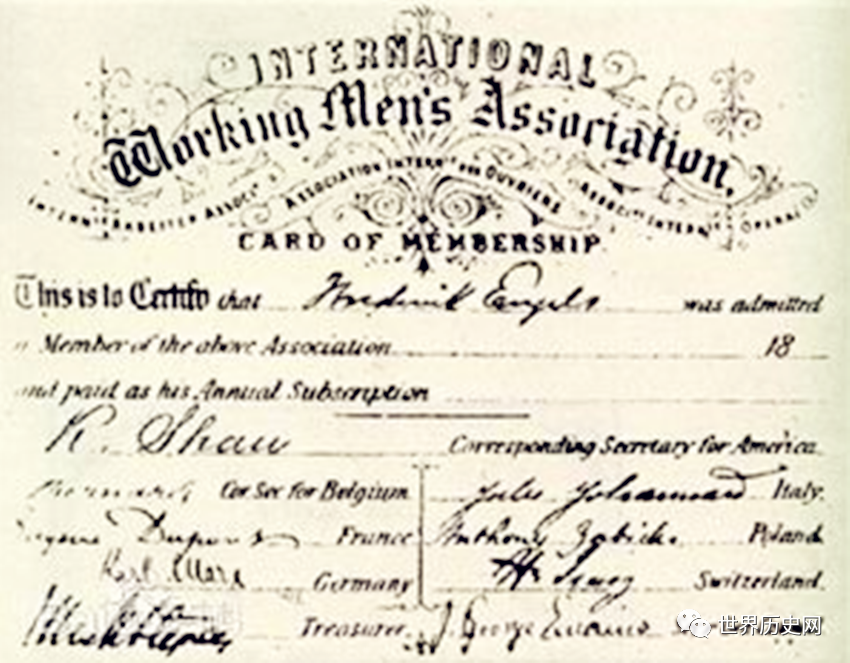 INTERNATIONAL
Working Men's Association,
ASSOCIATION INTERN DES OUVRIERS
CARD OF MEMBERSHIP.
This is to Certify that Frederick Engels was admitted
a Member of the above Association 18
and paid as his Annual Subscription
R. Shaw Corresponding Secretary for America
Cor Sec for Belgium Jules Johannard Italy.
Eugene Dupont France Anthony Zabicki Poland
Karl Marx Germany H. Jung Switzerland.
Treasurer. J. George Eccarius
世界历史网